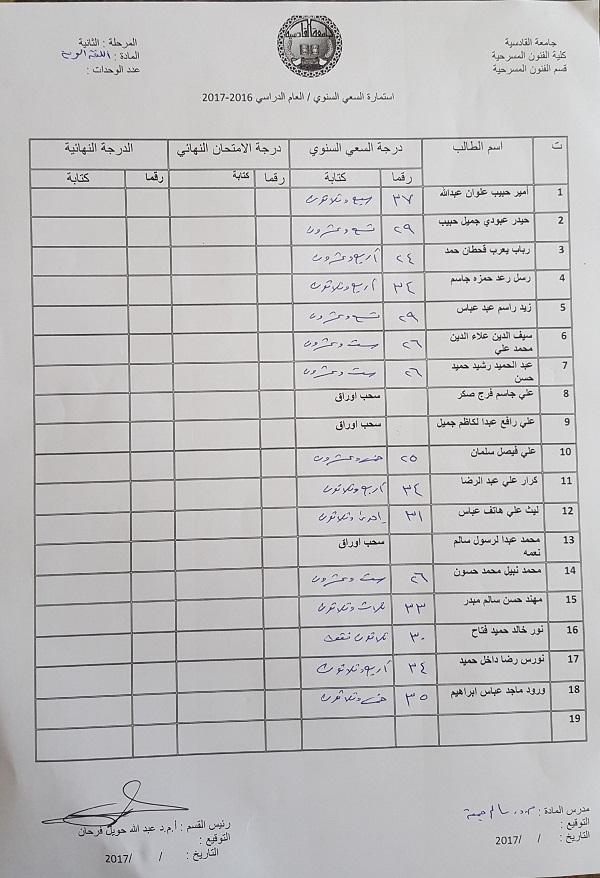 جامعة القادسية
كلية الفنون المسرحية
قسم الفنون المسرحية
المرحلة : الثانية
المادة :
عدد الوحدات :
استمارة السعي السنوي / العام الدراسي 2016-2017
ت اسم الطالب درجة السعي السنوي درجة الامتحان النهائي الدرجة النهائية
رقما كتابة رقما كتابة رقما كتابة
1 أمير حبيب علوان عبدالله ٣٧ سبع وثلاثون
2 حيدر عبودي جميل حبيب ٢٩ تسع وعشرون
3 رباب يعرب قحطان حمد ٢٤ أربع وعشرون
4 رسل رعد حمزه جاسم ٣٤ أربع وثلاثون
5 زيد راسم عبد عباس ٢٩ تسع وعشرون
6 سيف الدين علاء الدين ٢٦ ست وعشرون
محمد علي
7 عبد الحميد رشيد حميد ٢٦ ست وعشرون
حسن
8 علي جاسم فرج صكر سحب اوراق
9 علي رافع عبدا لكاظم جميل سحب اوراق
10 علي فيصل سلمان ٢٥ خمس وعشرون
11 كرار علي عبد الرضا ٣٤ أربع وثلاثون
12 ليث علي هاتف عباس ٣١ واحد وثلاثون
13 محمد عبدا لرسول سالم سحب اوراق
نعمه
14 محمد نبيل محمد حسون ٢٦ ست وعشرون
15 مهند حسن سالم مبدر ٣٣ ثلاث وثلاثون
16 نور خالد حميد فتاح ٣٠ ثلاثون فقط
17 نورس رضا داخل حميد ٣٤ أربع وثلاثون
18 ورود ماجد عباس ابراهيم ٣٥ خمس وثلاثون
19
مدرس المادة :
التوقيع :
التاريخ : / /2017
رئيس القسم : أ.م.د عبد الله حويل فرحان
التوقيع :
التاريخ : / /2017